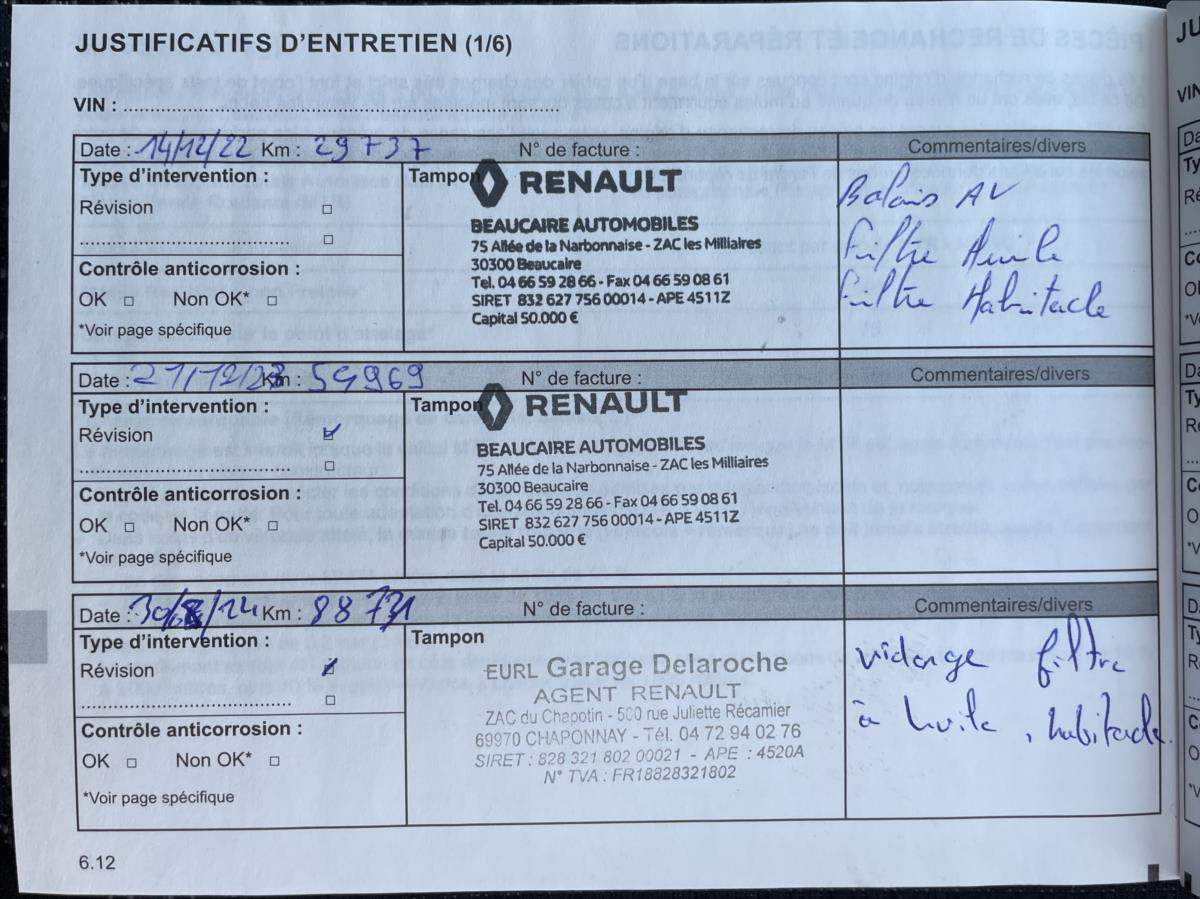 JUSTIFICATIFS D'ENTRETIEN (1/6)
VIN :
Date : 14/12/22 Km : 29 737 N° de facture : Commentaires/divers
Type d'intervention :
Révision
Contrôle anticorrosion :
OK Non OK*
*Voir page spécifique
Tampon
RENAULT
BEAUCAIRE AUTOMOBILES
75 Allée de la Narbonnaise - ZAC les Milliaires
30300 Beaucaire
Tel. 04 66 59 28 66 - Fax 04 66 59 08 61
SIRET 832 627 756 00014 - APE 4511Z
Capital 50.000 €
Balais AV
Filtre Huile
Filtre Habitacle
Date : 21/12/23 Km : 59969 N° de facture : Commentaires/divers
Type d'intervention :
Révision
Contrôle anticorrosion :
OK Non OK*
*Voir page spécifique
Tampon
RENAULT
BEAUCAIRE AUTOMOBILES
75 Allée de la Narbonnaise - ZAC les Milliaires
30300 Beaucaire
Tel. 04 66 59 28 66 - Fax 04 66 59 08 61
SIRET 832 627 756 00014 - APE 4511Z
Capital 50.000 €
Date : Km : N° de facture : Commentaires/divers
Type d'intervention :
Révision
Contrôle anticorrosion :
OK Non OK*
*Voir page spécifique
Tampon
EURL Garage Delaroche
AGENT RENAULT
ZAC du Chapotin - 500 rue Juliette Récamier
69970 CHAPONNAY - Tél. 04 72 94 02 76
SIRET : 828 321 802 00021 - APE : 4520A
N° TVA : FR18828321802
vidange filtre
à huile, habitacle
6.12